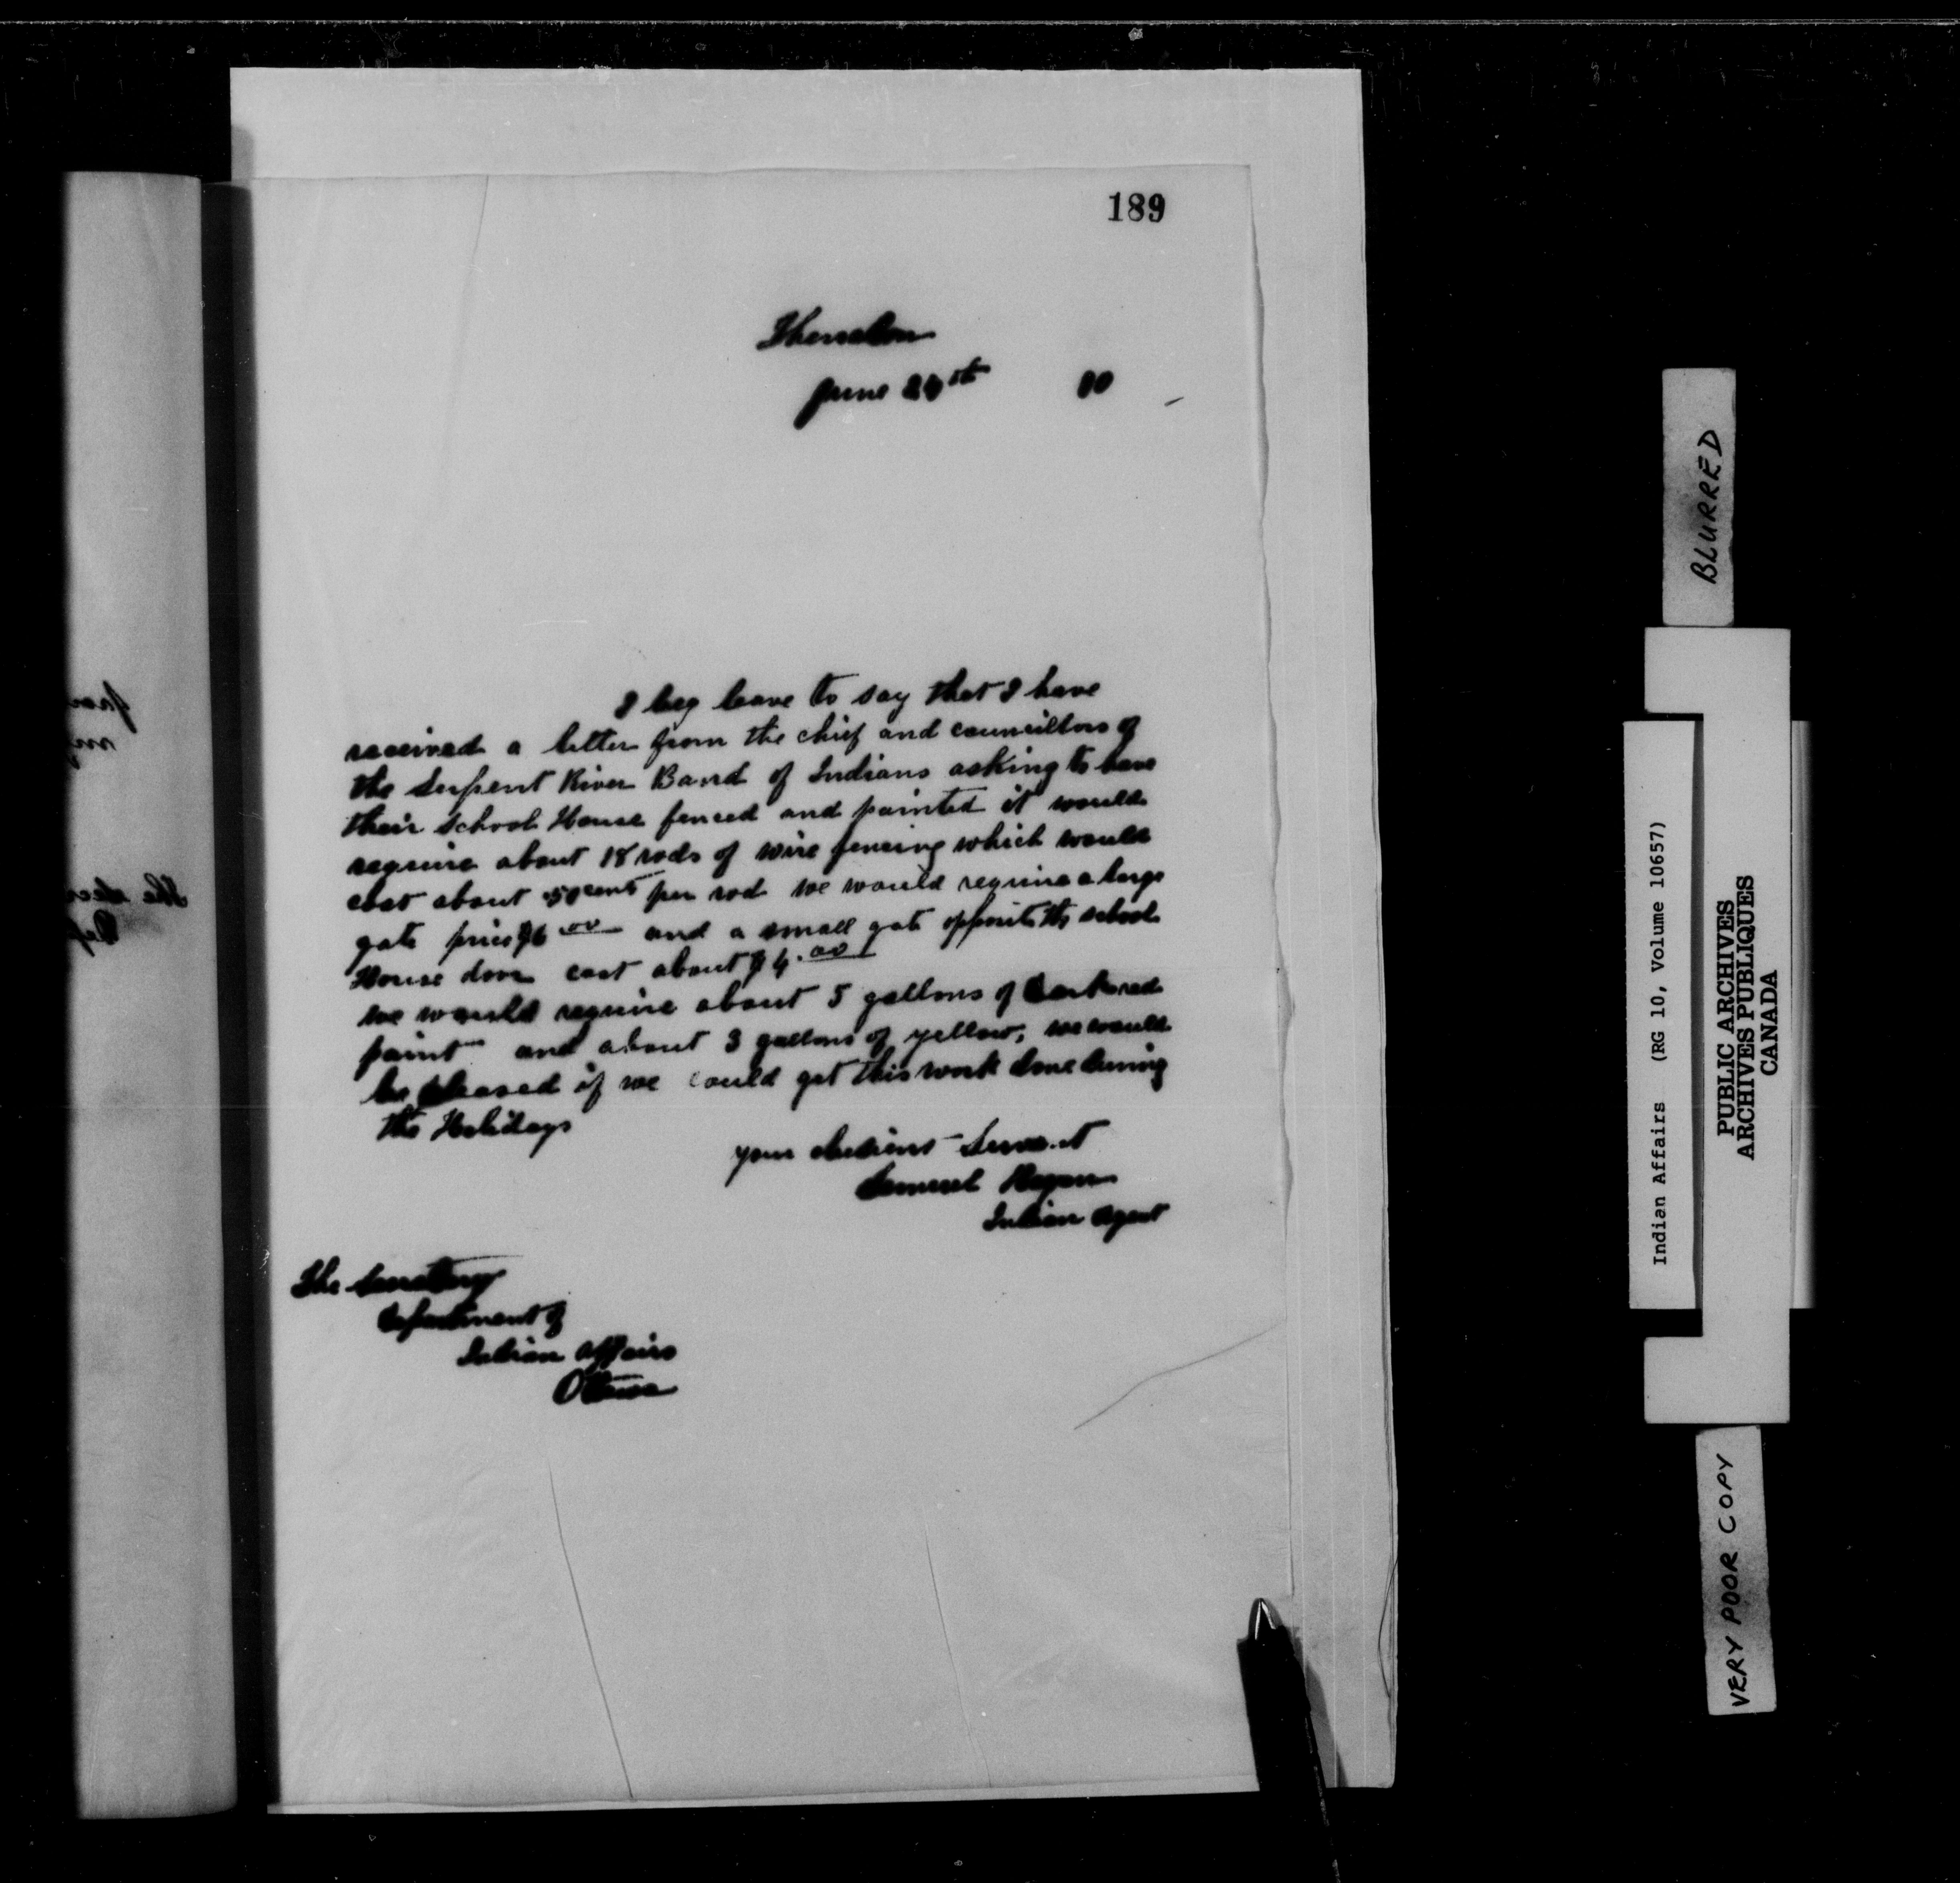 189
Thessalon
June 24th 10
I beg leave to say that I have
received a letter from the chief and councillors of
the Serpent River Band of Indians asking to have
their School House fenced and painted it would
require about 18 rods of wire fencing which would
cost about 50 cents per rod we would require a large
gate price $6.00 and a small gate opposite the school
House door cost about $4.00
we would require about 5 gallons of dark red
paint and about 3 gallons of yellow, we would
be pleased if we could get this work done during
the Holidays
your obedient Servant
Samuel Hagan
Indian Agent
The Secretary
Department of
Indian Affairs
Ottawa
BLURRED
Indian Affairs (RG 10, Volume 10657)
PUBLIC ARCHIVES
ARCHIVES PUBLIQUES
CANADA
VERY POOR COPY